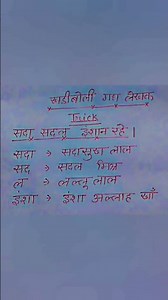 खड़ीबोली गद्य लेखक
Trick
सदा सदलू इंशान रहे |
सदा → सदासुख लाल
सद → सदल मिश्र
ल → लल्लू लाल
इंशा → इंशा अल्लाह खाँ